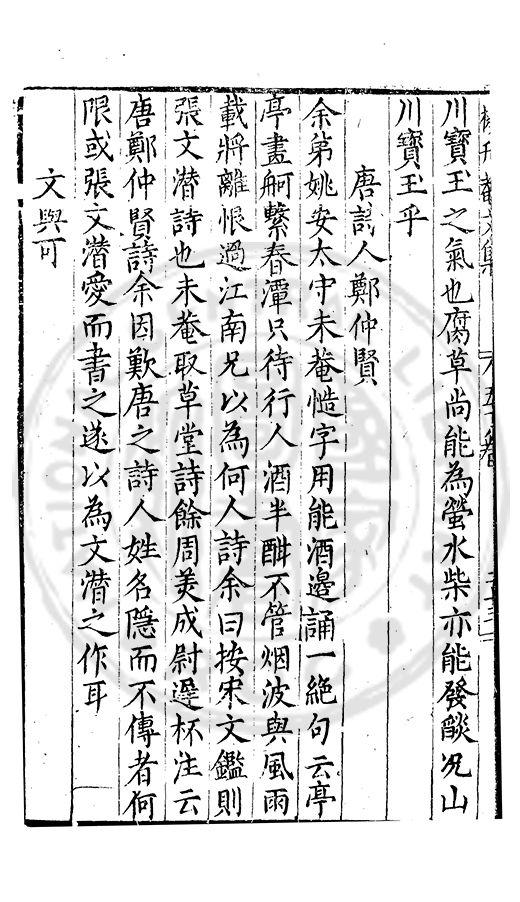 川寶玉之氣也腐草尚能為螢水柴亦能發燄况山
川寶玉乎
唐詩人鄭仲賢
余弟姚安太守未菴慥字用能酒邊誦一絶句云亭
亭畫舸繫春潭只待行人酒半酣不管烟波與風雨
載將離恨過江南兄以為何人詩余曰按宋文鑑則
張文潜詩也未菴取草堂詩餘周美成尉遲杯注云
唐鄭仲賢詩余因歎唐之詩人姓名隱而不傳者何
限或張文潜愛而書之遂以為文潜之作耳
文與可